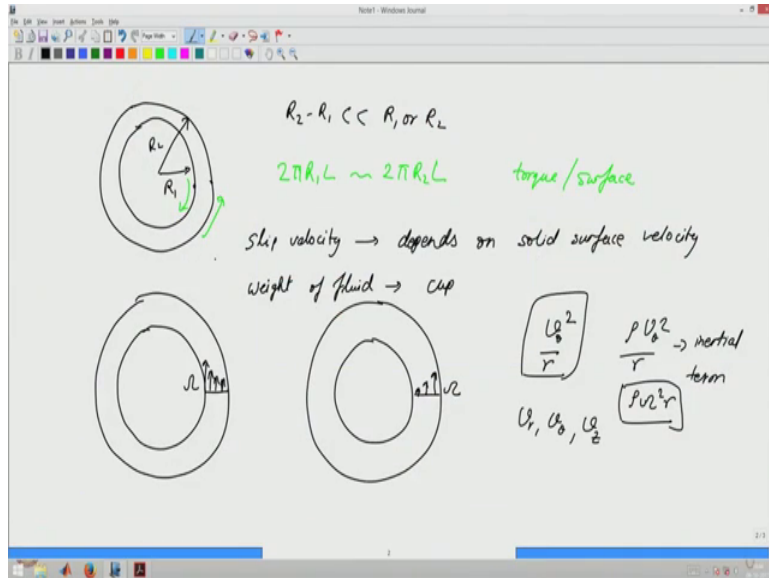 Note1 - Windows Journal
File Edit View Insert Actions Tools Help
Page Width
B I
R₂
R₁
R₂-R₁ << R₁ or R₂
2πR₁L ~ 2πR₂L torque/surface
slip velocity → depends on solid surface velocity
weight of fluid → cup
Ω
Ω
υ_θ²/r ρυ_θ²/r → inertial term
ρΩ²r
υ_r, υ_θ, υ_z
2
2/3